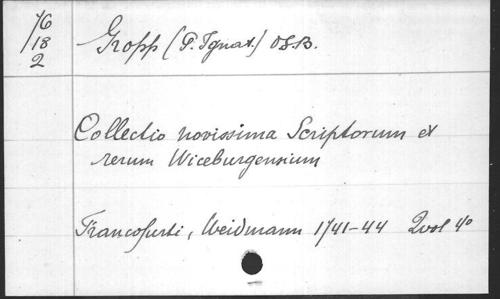 76
18
2
Gropp (P. Ignat.) OSB.
Collectio novissima Scriptorum et
rerum Wiceburgensium
Francofurti, Weidmann 1741-44 2vol 4o